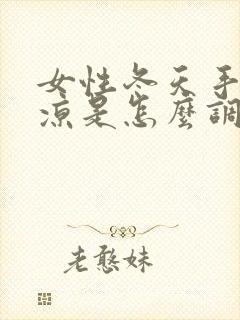 女性冬天手
涼是怎麼調
老憨妹